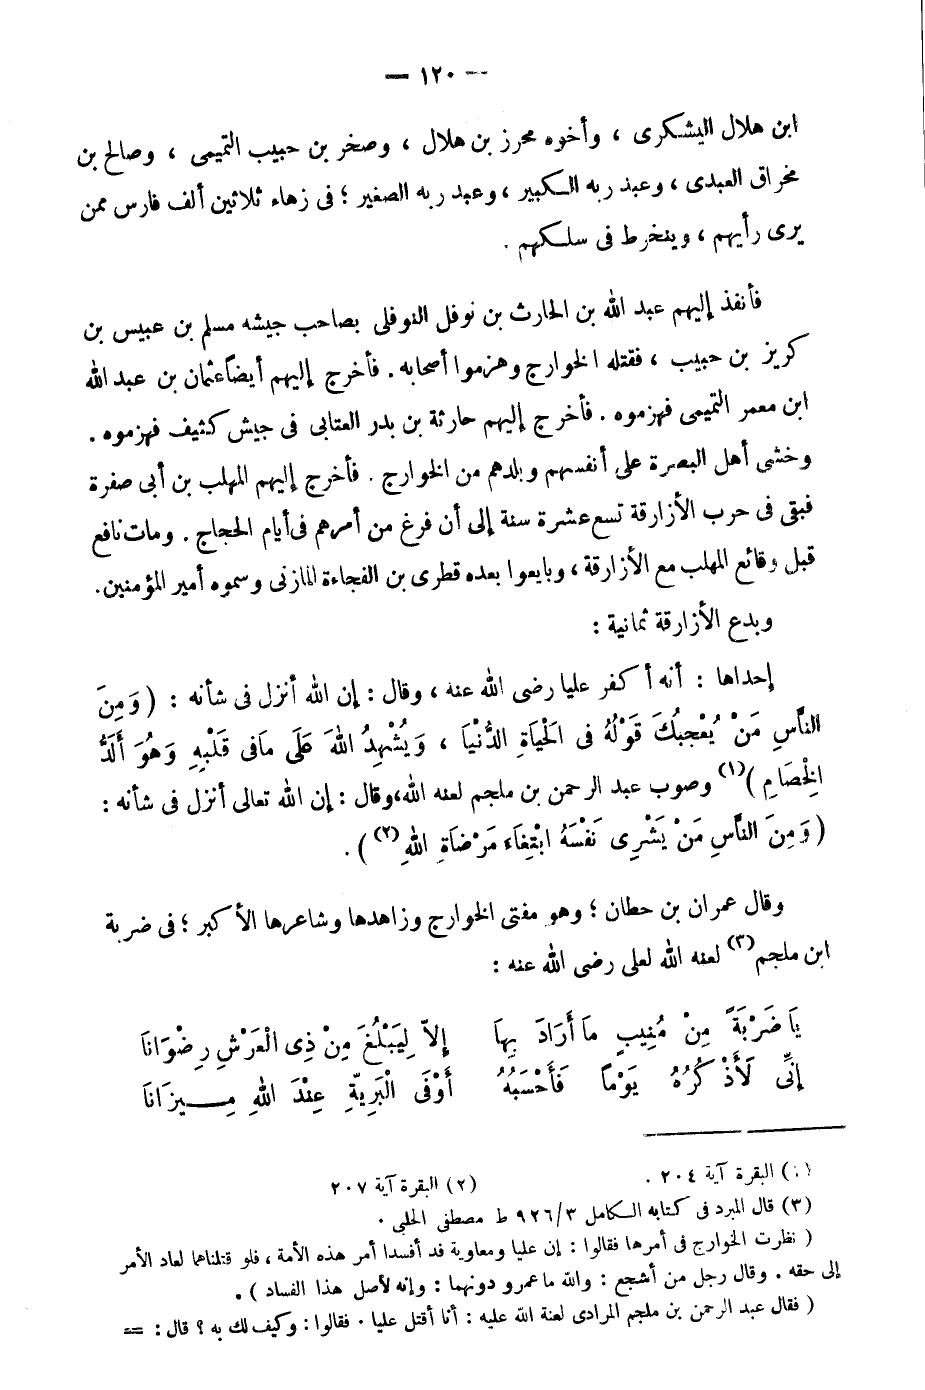 — ١٢٠ —
ابن هلال اليشكرى ، وأخوه محرز بن هلال ، وصخر بن حبيب التميمى ، وصالح بن
مخراق العبدى ، وعبد ربه الكبير ، وعبد ربه الصغير ؛ فى زهاء ثلاثين ألف فارس ممن
يرى رأيهم ، وينخرط فى سلكهم .
فأنفذ إليهم عبد الله بن الحارث بن نوفل النوفلى بصاحب جيشه مسلم بن عبيس بن
كريز بن حبيب ، فقتله الخوارج وهزموا أصحابه . فأخرج إليهم أيضاً عثمان بن عبد الله
ابن معمر التميمى فهزموه . فأخرج إليهم حارثة بن بدر العتابى فى جيش كثيف فهزموه .
وخشى أهل البصرة على أنفسهم وبلدهم من الخوارج . فأخرج إليهم المهلب بن أبى صفرة
فبقى فى حرب الأزارقة تسع عشرة سنة إلى أن فرغ من أمرهم فى أيام الحجاج . ومات نافع
قبل وقائع المهلب مع الأزارقة ، وبايعوا بعده قطرى بن الفجاءة المازنى وسموه أمير المؤمنين .
وبدع الأزارقة ثمانية :
إحداها : أنه أكفر عليا رضى الله عنه ، وقال : إن الله أنزل فى شأنه : ( وَمِنَ
النَّاسِ مَنْ يُعْجِبُكَ قَوْلُهُ فى الْحَيَاةِ الدُّنْيَا ، وَيُشْهِدُ اللهَ عَلَى مَافى قَلْبِهِ وَهُوَ أَلَدُّ
الْخِصَامِ )(١) وصوب عبد الرحمن بن ملجم لعنه الله،وقال : إن الله تعالى أنزل فى شأنه :
( وَمِنَ النَّاسِ مَنْ يَشْرِى نَفْسَهُ ابْتِغَاءَ مَرْضَاةِ اللهِ (٢) ) .
وقال عمران بن حطان ؛ وهو مفتى الخوارج وزاهدها وشاعرها الأكبر ؛ فى ضربة
ابن ملجم(٣) لعنه الله لعلى رضى الله عنه :
يَا ضَرْبَةً مِنْ مُنِيبٍ مَا أَرَادَ بِهَا إِلاّ لِيَبْلُغَ مِنْ ذِى الْعَرْشِ رِضْوَانَا
إِنِّى لَأَذْكُرُهُ يَوْماً فَأَحْسَبُهُ أَوْفَى الْبَرِيّةِ عِنْدَ اللهِ مِـيزَانَا
(١) البقرة آية ٢٠٤ . (٢) البقرة آية ٢٠٧
(٣) قال المبرد فى كتابه الكامل ٩٢٦/٣ ط مصطفى الحلبى .
( نظرت الخوارج فى أمرها فقالوا : إن عليا ومعاوية قد أفسدا أمر هذه الأمة ، فلو قتلناهما لعاد الأمر
إلى حقه . وقال رجل من أشجع : والله ما عمرو دونهما : وإنه لأصل هذا الفساد ) .
( فقال عبد الرحمن بن ملجم المرادى لعنة الله عليه : أنا أقتل عليا . فقالوا : وكيف لك به ؟ قال : ==